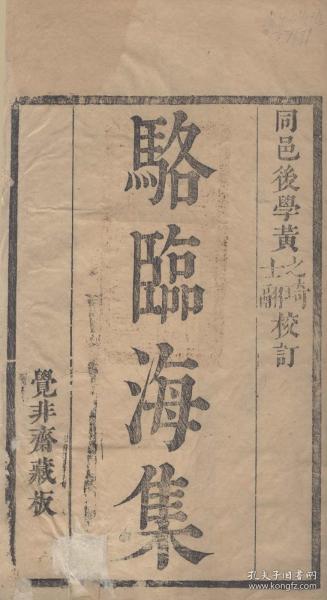 同邑後學黃之琦士翮校訂
駱臨海集
覺非齋藏板
孔夫子旧书网
www.kongfz.com